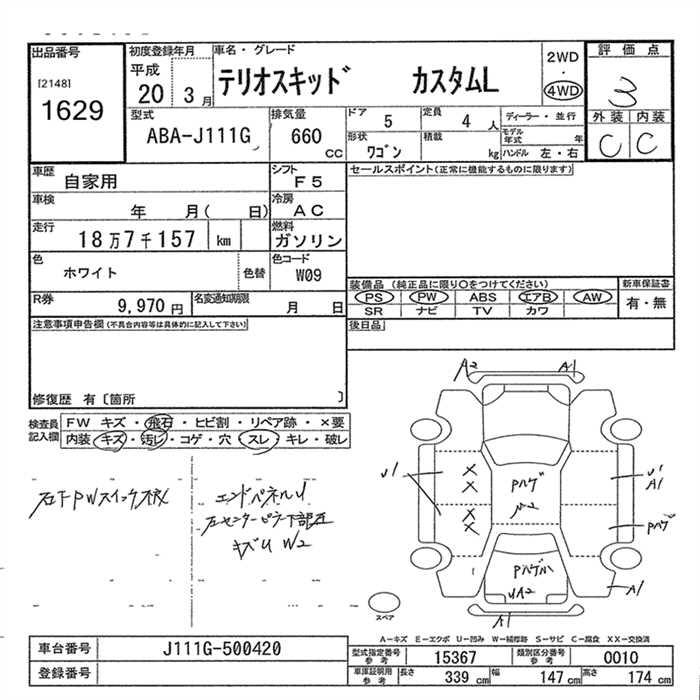 出品番号
[2148]
1629
初度登録年月
平成
20 3月
車名・グレード
テリオスキッド カスタムL
2WD
・
4WD
評価点
3
外装 内装
C C
型式
ABA-J111G
排気量
660
CC
ドア 5
定員 4 人
形状 ワゴン
積載 kg
ディーラー・並行
モデル年式 年
ハンドル 左・右
車歴 自家用
シフト F5
車検 年 月( 日)
冷房 AC
走行 18万7千157 km
燃料 ガソリン
色 ホワイト
色替
色コード W09
R券 9,970円
名変通知期限 月 日
セールスポイント(正常に機能するものに限ります)
装備品 (純正品に限り○をつけてください)
PS PW ABS エアB AW
SR ナビ TV カワ
新車保証書
有・無
後日品
注意事項申告欄(不具合内容等は具体的に記入して下さい)
修復歴 有〔箇所 〕
検査員記入欄
FW キズ・飛石・ヒビ割・リペア跡・×要
内装・キズ・汚レ・コゲ・穴・スレ・キレ・破レ
エンドパネルU
キズU W2
A2 A1
U1
U1
A1
Pハゲ
Pハゲ
A1
A1
スペア
A-キズ E-エクボ U-凹み W-補修跡 S-サビ C-腐食 XX-交換済
車台番号 J111G-500420
登録番号
型式指定番号 参考 15367
類別区分番号 参考 0010
車庫証明用 参考 長さ 339cm 幅 147cm 高さ 174cm